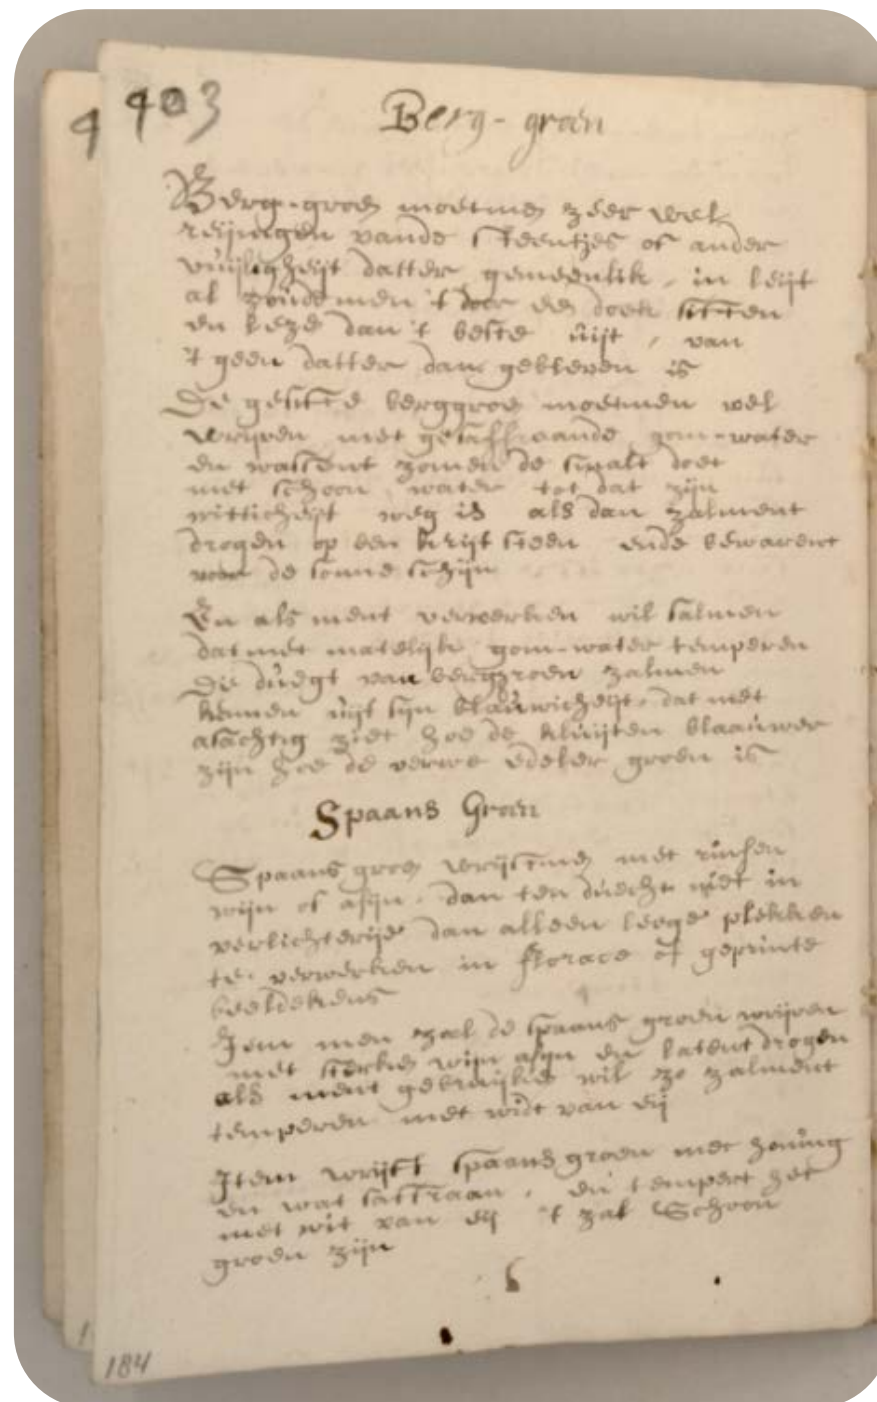 4 403
Berg-groen
Berg-groen moetmen zeer wel
reijnigen vande steentjes of ander
vuijligheijt datter gemeenlik, in leijt
al zoude men 't door een doek siften
en leze dan 't beste uijt, van
't geen datter dan gebleven is
De gesifte berggroen moetmen wel
wrijven met gesaffraande gom-water
en wassent zomen de smalt doet
met schoon water tot dat zijn
wittichheijt weg is als dan zalment
drogen op een krijt steen ende bewarent
voor de sonne schijn
En als ment verwerken wil salmen
dat met matelijk gom-water temperen
De duegt van berggroen zalmen
kennen uijt sijn blauwicheijt, dat met
asachtig ziet hoe de kluijten blaauwer
zijn hoe de verwe edeler groen is
Spaans Groen
Spaans groen wrijftmen met rinsen
wijn of asijn, dan ten duecht niet in
verlichterije dan alleen leege plekken
te verwerken in florace of geprinte
beeldekens
Item men zal de spaans groen wrijven
met sterken wijn asijn en latent drogen
als ment gebruijken wil zo zalment
temperen met widt van eij
Item wrijft spaans groen met honing
en wat saffraan, en tempert het
met wit van eij 't zal Schoon
groen zijn
184